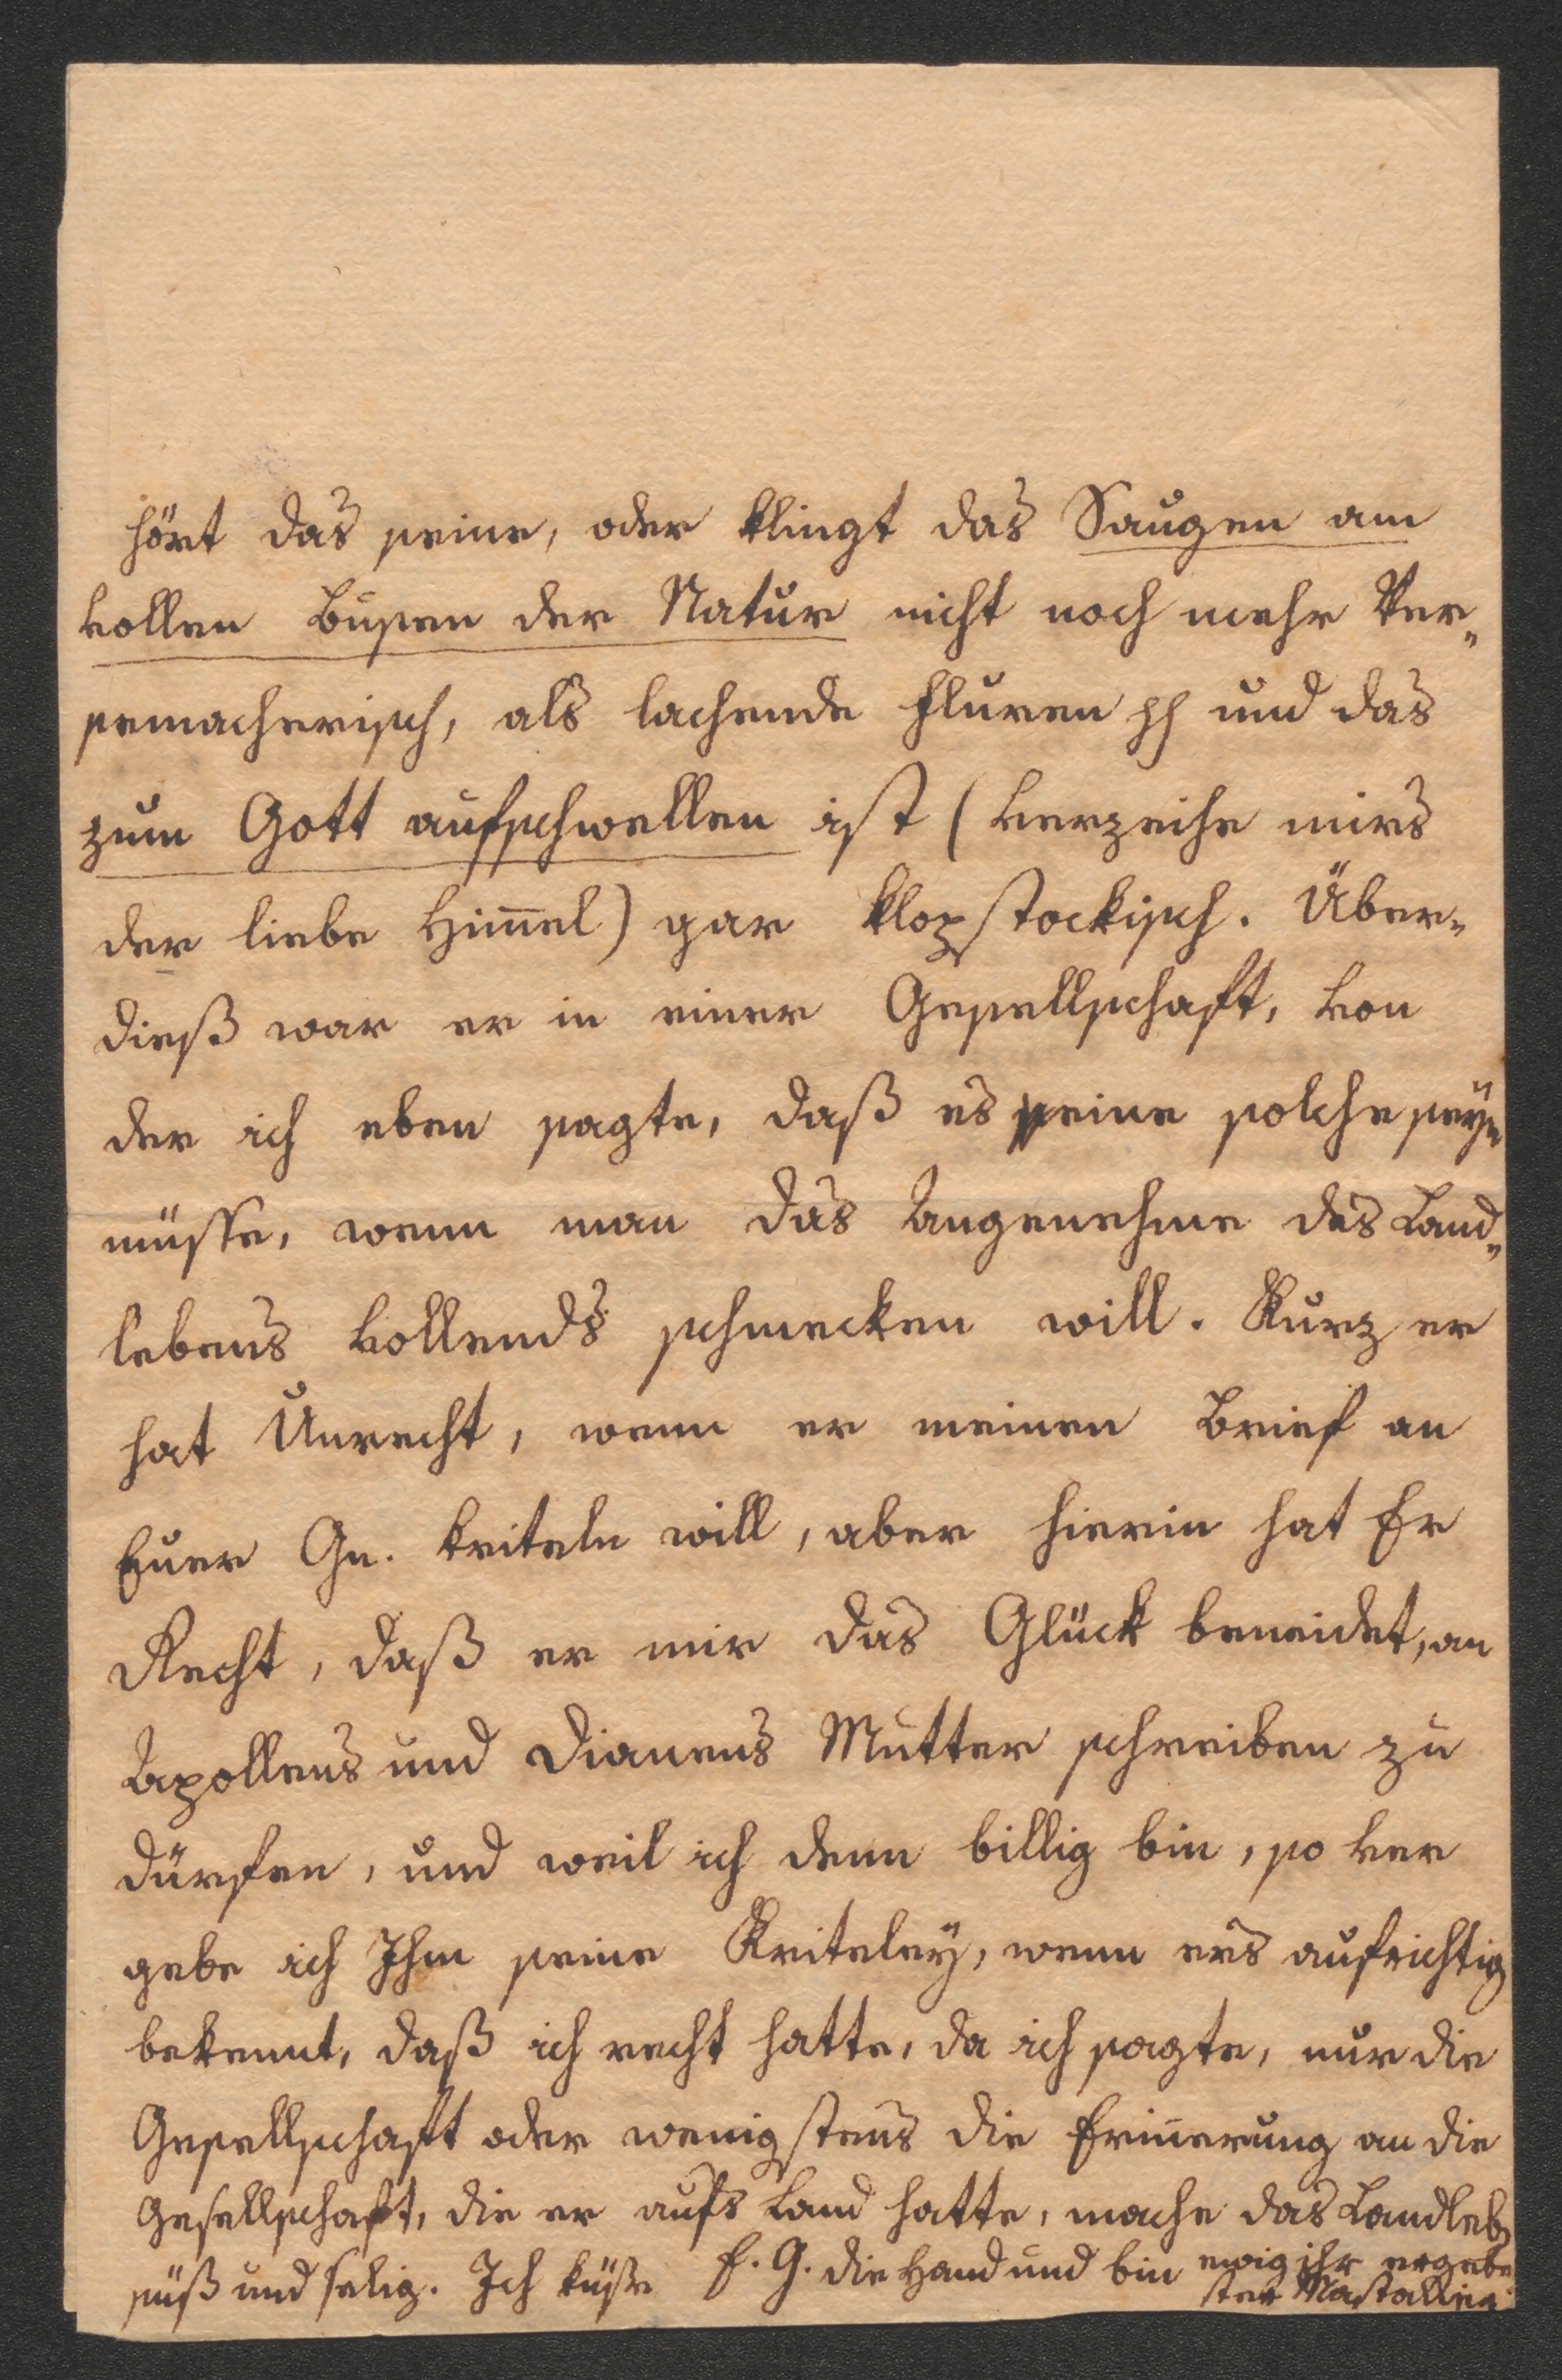 hört das seine, oder klingt das Saugen am
vollen Busen der Natur nicht noch mehr Ver„
semacherisch, als lachende Fluren pp und das
zum Gott aufschwellen ist (verzeihe mirs
der liebe Him̅el) gar klopstockisch. Über„
dieß war er in einer Gesellschaft, von
der ich eben sagte, daß es seine solche seyn
müsse, wenn man das Angenehme des Land„
lebens vollends schmecken will. Kurz er
hat Unrecht, wenn er meinen Brief an
Euer Gn. kriteln will, aber hierin hat Er
Recht, daß er mir das Glück beneidet, an
Apollens und Dianens Mutter schreiben zu
dürfen, und weil ich denn billig bin, so ver
gebe ich Ihm seine Kriteley, wenn ers aufrichtig
bekennt, daß ich recht hatte, da ich sagte, nur die
Gesellschaft oder wenigstens die Erin̅erung an die
Gesellschaft, die er aufs Land hatte, mache das Landleb
süß und selig. Ich küße E. G. die Hand und bin ewig ihr ergebe
ster Mastalier